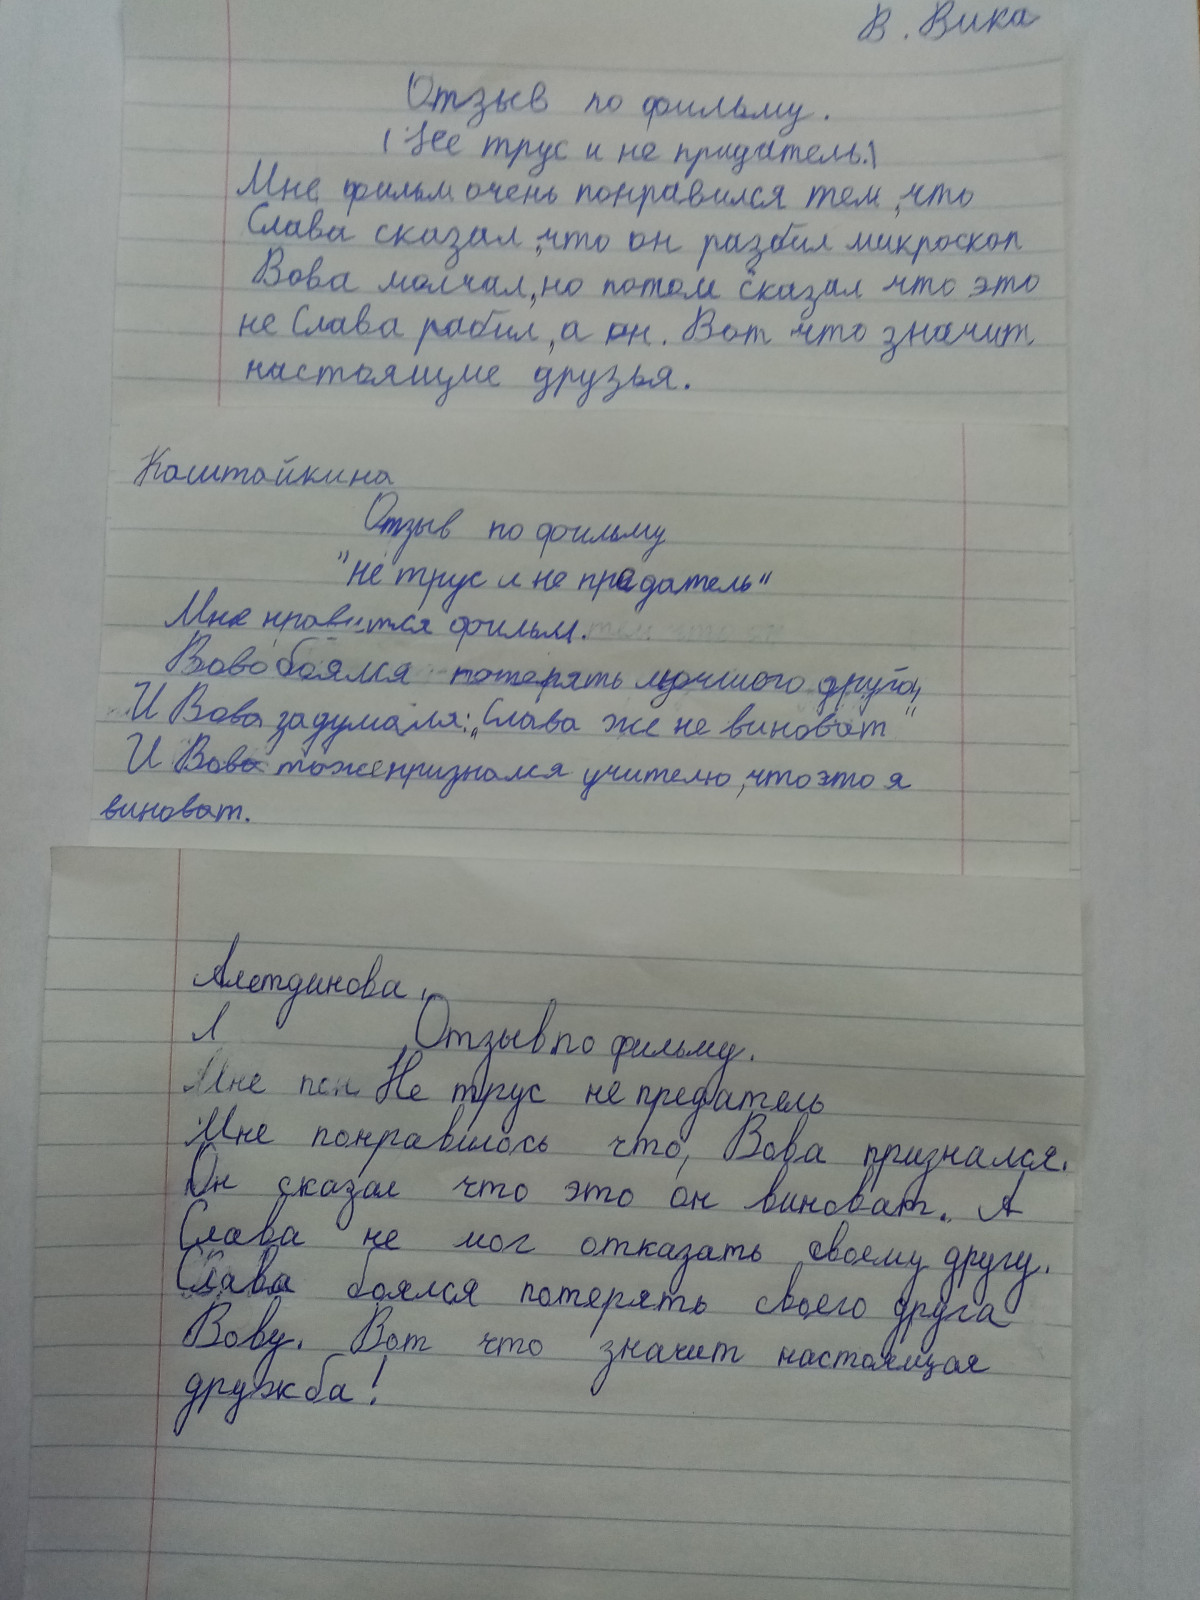 В. Вика
Отзыв по фильму.
(Не трус и не придатель.)
Мне фильм очень понравился тем, что
Слава сказал, что он разбил микроскоп
Вова молчал, но потом сказал что это
не Слава рабил, а он. Вот что значит
настоящие друзья.
Каштайкина
Отзыв по фильму
"не трус и не предатель"
Мне нравится фильм.
Вова боялся потерять лучшего друга,
И Вова задумался: „Слава же не виноват"
И Вова тоже признался учителю, что это я
виноват.
Алетдинова.
Л Отзыв по фильму.
Мне пон Не трус не предатель
Мне понравилось что, Вова признался.
Он сказал что это он виноват. А
Слава не мог отказать своему другу.
Слава боялся потерять своего друга
Вову. Вот что значит настоящая
дружба!